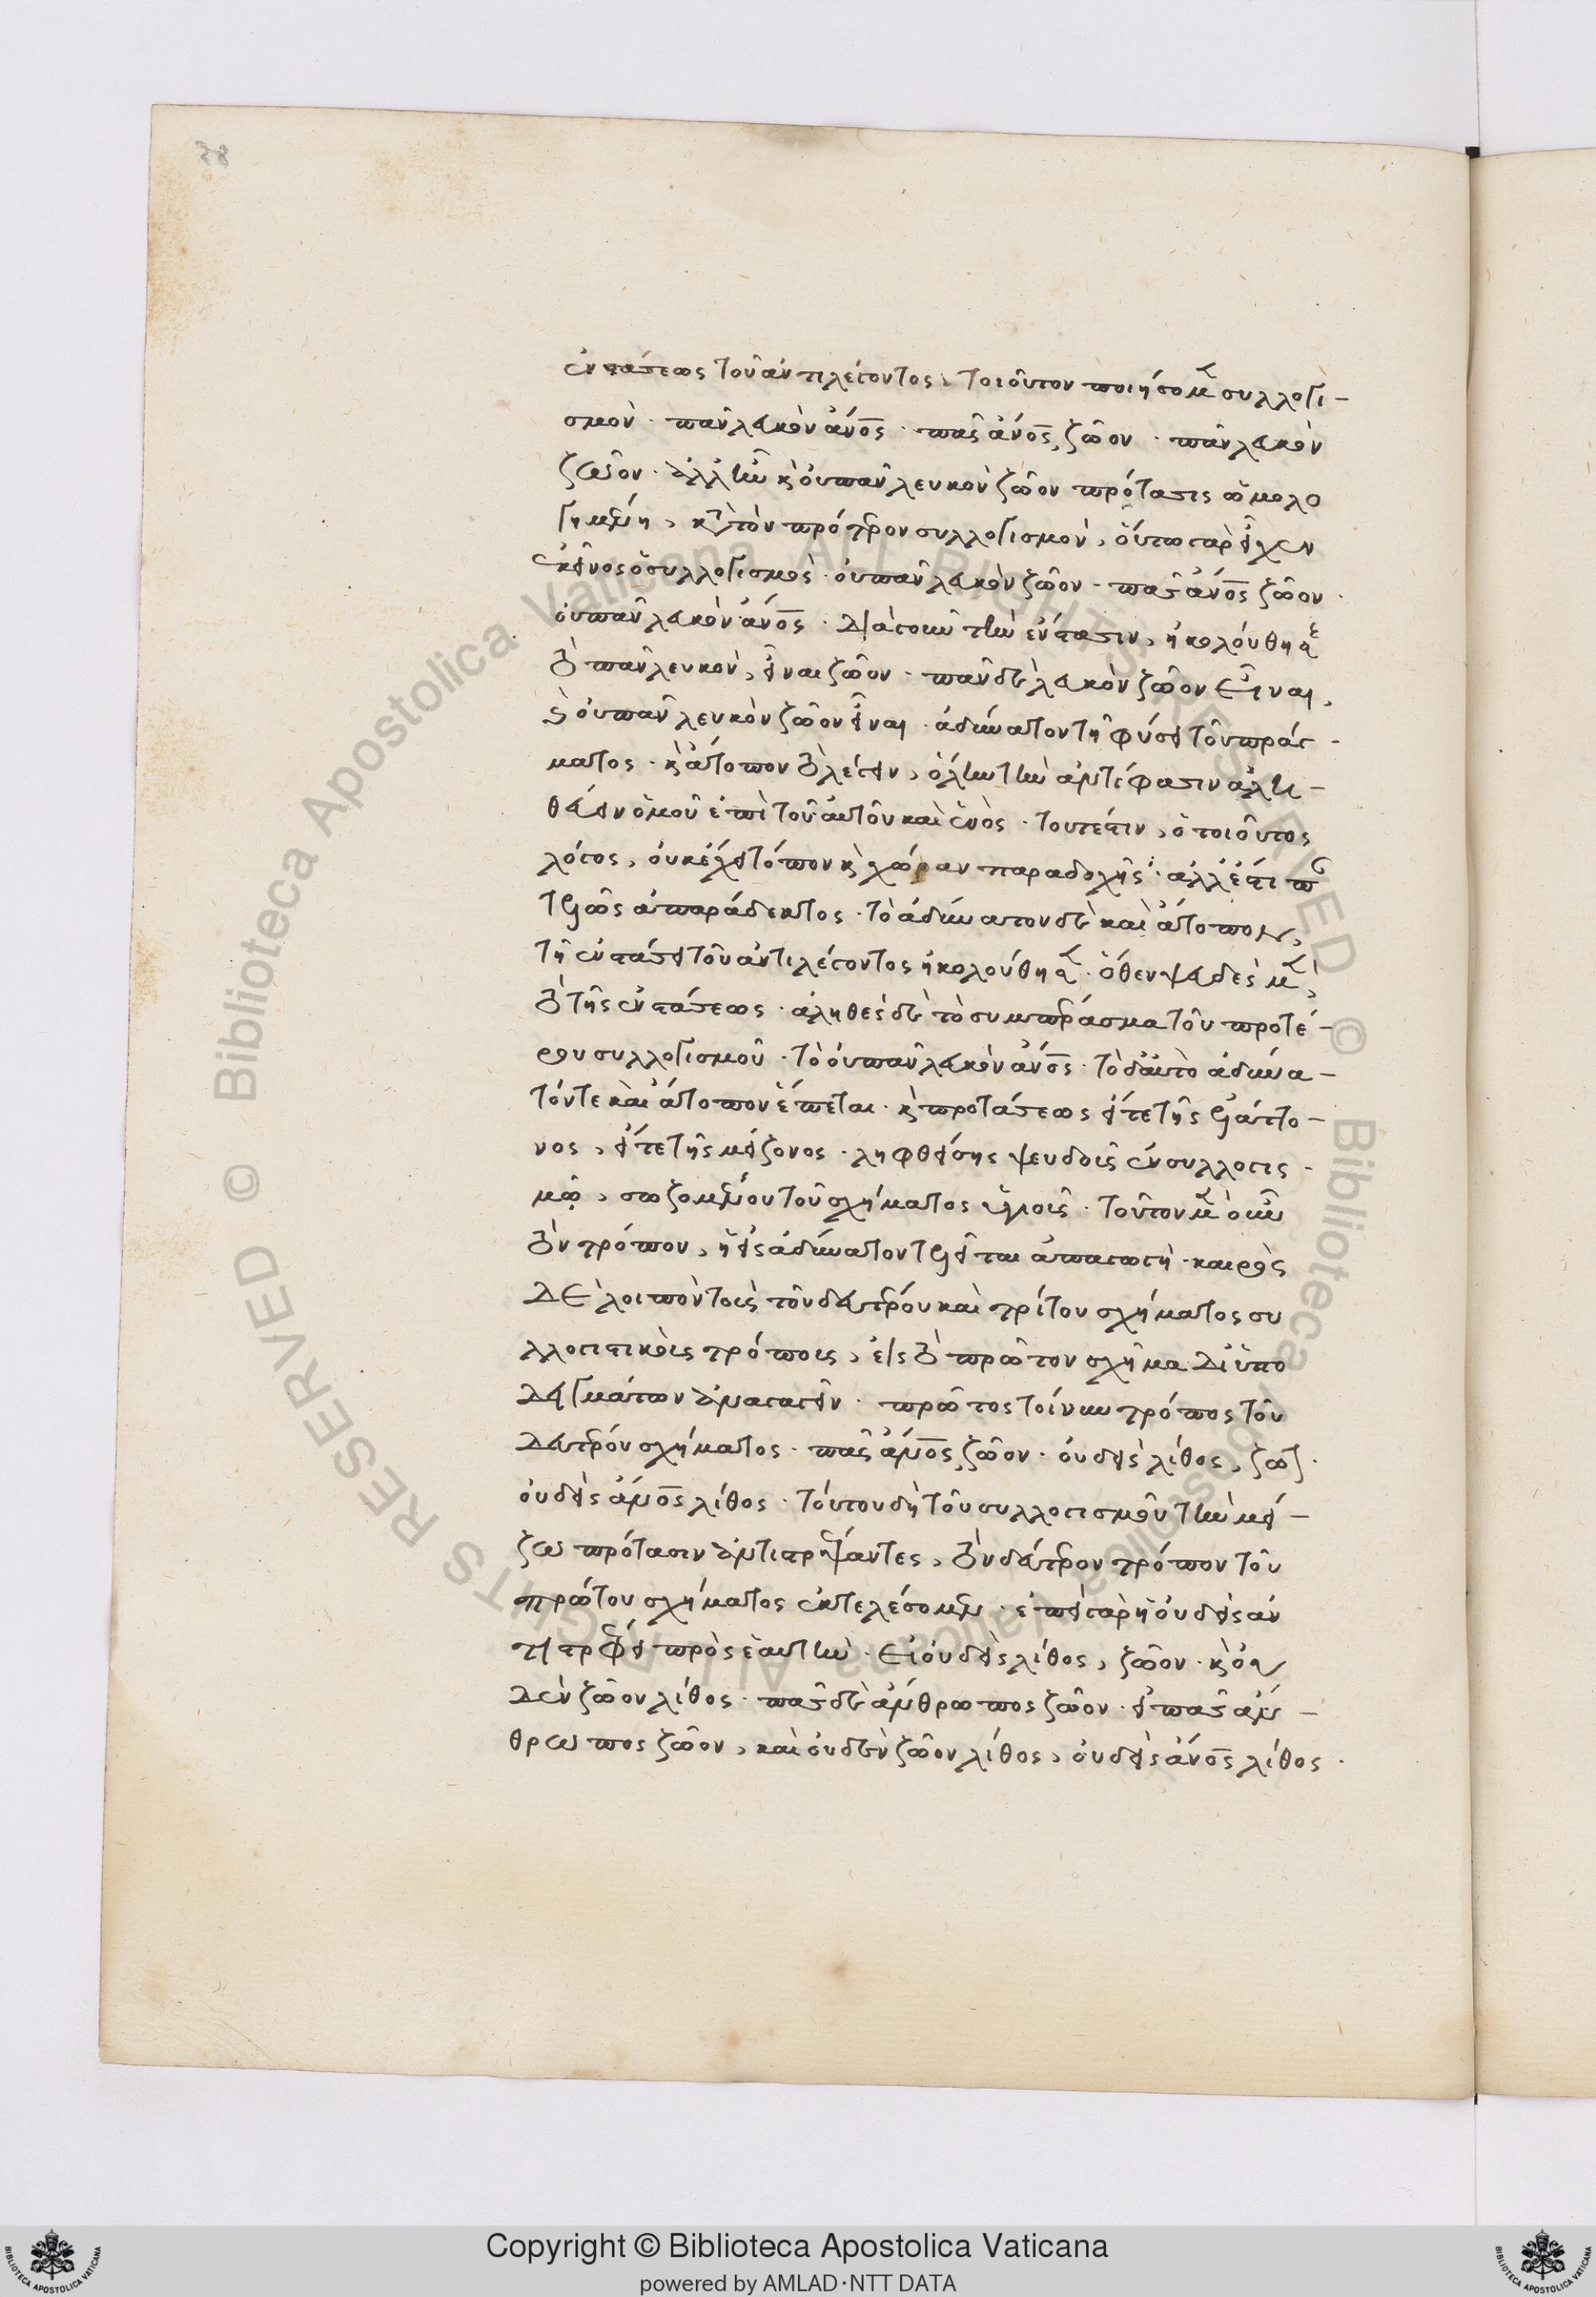 38
ἐνστάσεως τοῦ ἀντιλέγοντος. τοιοῦτον ποιήσομεν συλλογι-
σμόν· πᾶν λευκὸν ἄνος· πᾶς ἄνος ζῶον· πᾶν λευκὸν
ζῶον· ἀλλ' ἦν καὶ οὐ πᾶν λευκὸν ζῶον πρότασις ὡμολο
γημένη, κατὰ τὸν πρότερον συλλογισμόν, οὕτω γὰρ εἶχεν
ἐκεῖνος ὁ συλλογισμός· οὐ πᾶν λευκὸν ζῶον· πᾶς ἄνος ζῶον·
οὐ πᾶν λευκὸν ἄνος· διὰ γοῦν τὴν ἔνστασιν, ἠκολούθησε
τὸ πᾶν λευκὸν, εἶναι ζῶον· πᾶν δὲ λευκὸν ζῶον εἶναι,
καὶ οὐ πᾶν λευκὸν ζῶον εἶναι· ἀδύνατον τῇ φύσει τοῦ πράγ-
ματος· καὶ ἄτοπον τὸ λέγειν, ὅλην τὴν ἀντίφασιν ἀλη-
θεύειν ὁμοῦ ἐπὶ τοῦ αὐτοῦ καὶ ἑνός· τουτέστιν, ὁ τοιοῦτος
λόγος, οὐκ ἔχει τόπον καὶ χώραν παραδοχῆς· ἀλλ' ἔστι παν
τελῶς ἀπαράδεκτος· τὸ ἀδύνατον δὲ καὶ ἄτοπον,
τῇ ἐνστάσει τοῦ ἀντιλέγοντος ἠκολούθησεν· ὅθεν ψευδὲς μὲν,
τὸ τῆς ἐνστάσεως· ἀληθὲς δὲ τὸ συμπέρασμα τοῦ προτέ-
ρου συλλογισμοῦ· τὸ οὐ πᾶν λευκὸν ἄνος· τὸ δ' αὐτὸ ἀδύνα-
τόν τε καὶ ἄτοπον ἕπεται· καὶ προτάσεως εἴτε τῆς ἐλάττο-
νος, εἴτε τῆς μείζονος· ληφθείσης ψευδοῦς ἐν συλλογισ-
μῷ, σωζομένου τοῦ σχήματος ὑγιοῦς· τοῦτον μὲν οὖν
τὸν τρόπον, ἡ εἰς ἀδύνατον τελεῖται ἀπαγωγή· καιρὸς
δὲ λοιπὸν τοὺς τοῦ δευτέρου καὶ τρίτου σχήματος συ
λλογιστικοὺς τρόπους, εἰς τὸ πρῶτον σχῆμα δι' ὑπο
δειγμάτων ἀναγαγεῖν· πρῶτος τοίνυν τρόπος τοῦ
δευτέρου σχήματος· πᾶς ἄνος ζῶον· οὐδεὶς λίθος, ζῶον·
οὐδεὶς ἄνος λίθος· τούτου δὴ τοῦ συλλογισμοῦ τὴν μεί-
ζω πρότασιν ἀντιστρέψαντες, τὸν δεύτερον τρόπον τοῦ
πρώτου σχήματος ἐκτελέσομεν· ἐπεὶ γὰρ ἡ οὐδεὶς ἀν
τιστρέφει πρὸς ἑαυτὴν· εἰ οὐδεὶς λίθος, ζῶον· καὶ οὐ
δὲν ζῶον λίθος· πᾶς δὲ ἄνθρωπος ζῶον· εἰ πᾶς ἄν-
θρωπος ζῶον, καὶ οὐδὲν ζῶον λίθος, οὐδεὶς ἄνος λίθος·
Copyright © Biblioteca Apostolica Vaticana
powered by AMLAD·NTT DATA